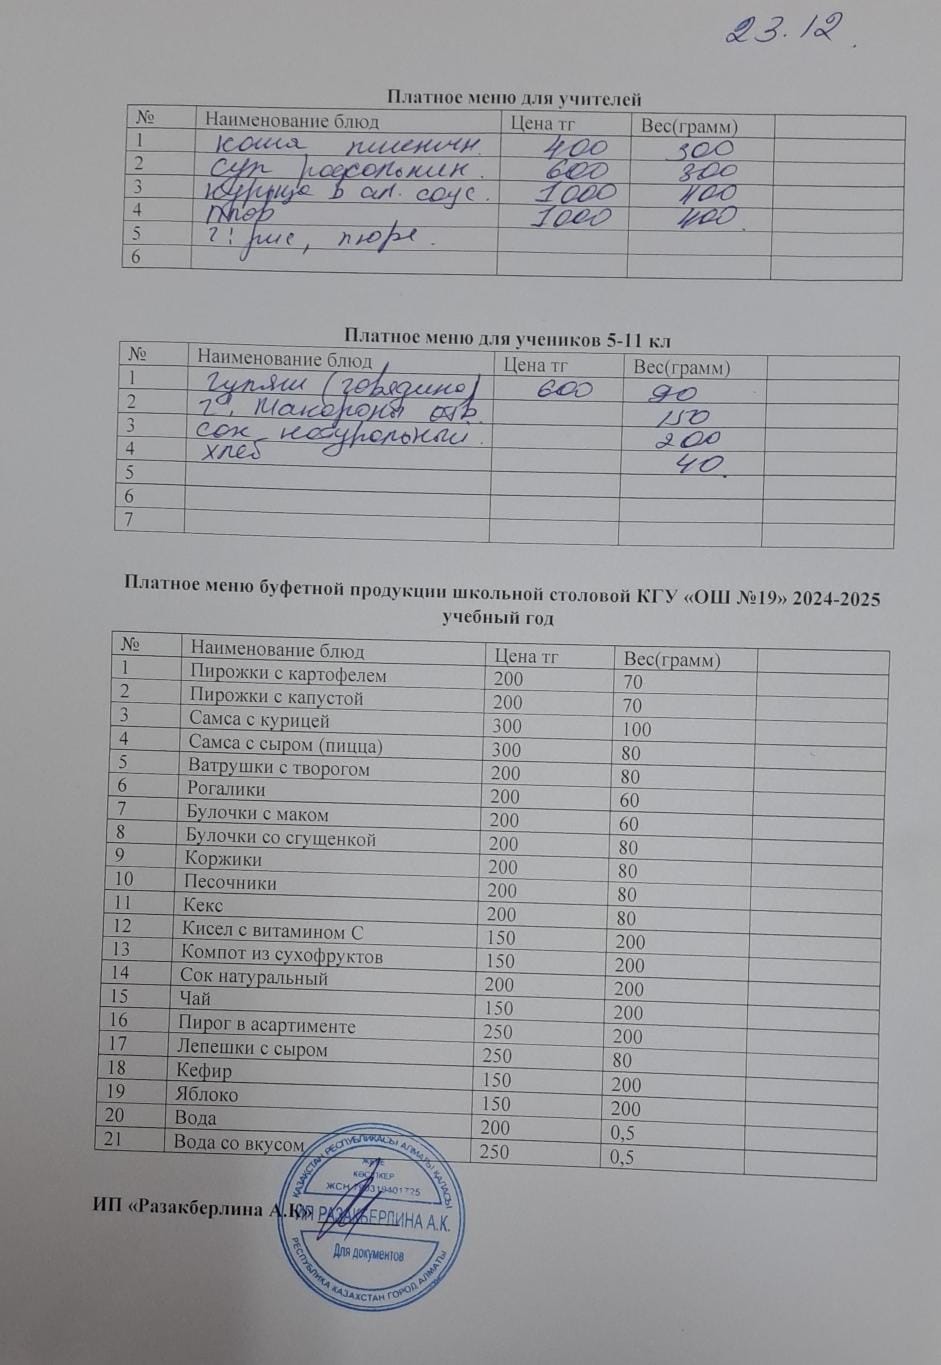 23.12.
Платное меню для учителей
№ Наименование блюд Цена тг Вес(грамм)
1 каша пшеничн. 400 300
2 суп рассольник. 600 300
3 курица в ап. соус. 1000 400
4 Плов 1000 400.
5 г: рис, пюре.
6
Платное меню для учеников 5-11 кл
№ Наименование блюд Цена тг Вес(грамм)
1 гуляш (говядина) 600 90
2 г. Макароны отв. 150
3 сок натуральный. 200
4 хлеб 40.
5
6
7
Платное меню буфетной продукции школьной столовой КГУ «ОШ №19» 2024-2025
учебный год
№ Наименование блюд Цена тг Вес(грамм)
1 Пирожки с картофелем 200 70
2 Пирожки с капустой 200 70
3 Самса с курицей 300 100
4 Самса с сыром (пицца) 300 80
5 Ватрушки с творогом 200 80
6 Рогалики 200 60
7 Булочки с маком 200 60
8 Булочки со сгущенкой 200 80
9 Коржики 200 80
10 Песочники 200 80
11 Кекс 200 80
12 Кисел с витамином С 150 200
13 Компот из сухофруктов 150 200
14 Сок натуральный 200 200
15 Чай 150 200
16 Пирог в асартименте 250 200
17 Лепешки с сыром 250 80
18 Кефир 150 200
19 Яблоко 150 200
20 Вода 200 0,5
21 Вода со вкусом 250 0,5
ИП «Разакберлина А.К»
ҚАЗАҚСТАН РЕСПУБЛИКАСЫ АЛМАТЫ ҚАЛАСЫ
ЖЕКЕ
КӘСІПКЕР
ИП РАЗАКБЕРЛИНА А.К.
Для документов
РЕСПУБЛИКА КАЗАХСТАН ГОРОД АЛМАТЫ